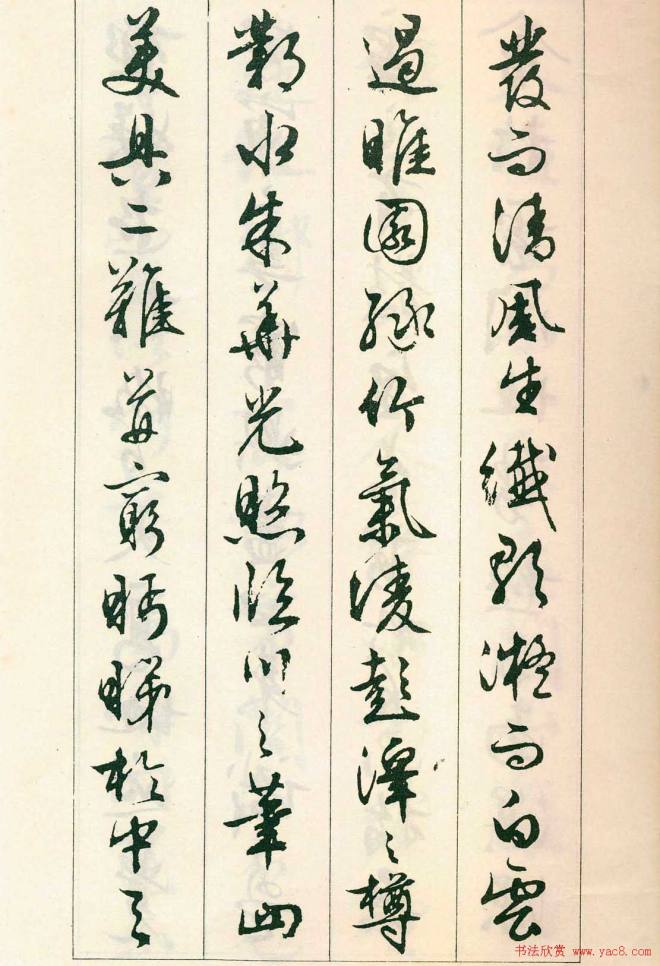 發而清風生纖歌凝而白雲
遏睢園綠竹氣凌彭澤之樽
鄴水朱華光照臨川之筆四
美具二難并窮眄睇於中天
书法欣赏 www.yac8.com